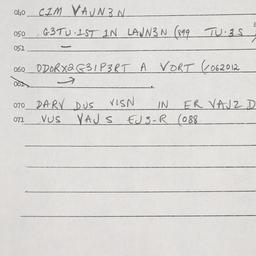 060 CIM VAJN3N
050 G3TU·1ST IN LAJN3N (899 TU·3S
051 —
060 ODORX2G31P3RT A VORT (/062012
061 →
070 DARV DUS VISN IN ER VAJZ D
071 VUS VAJS EJS-R (088